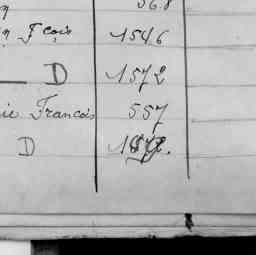 568
n Fçois 1546
D 1572
ie Francois 557
D